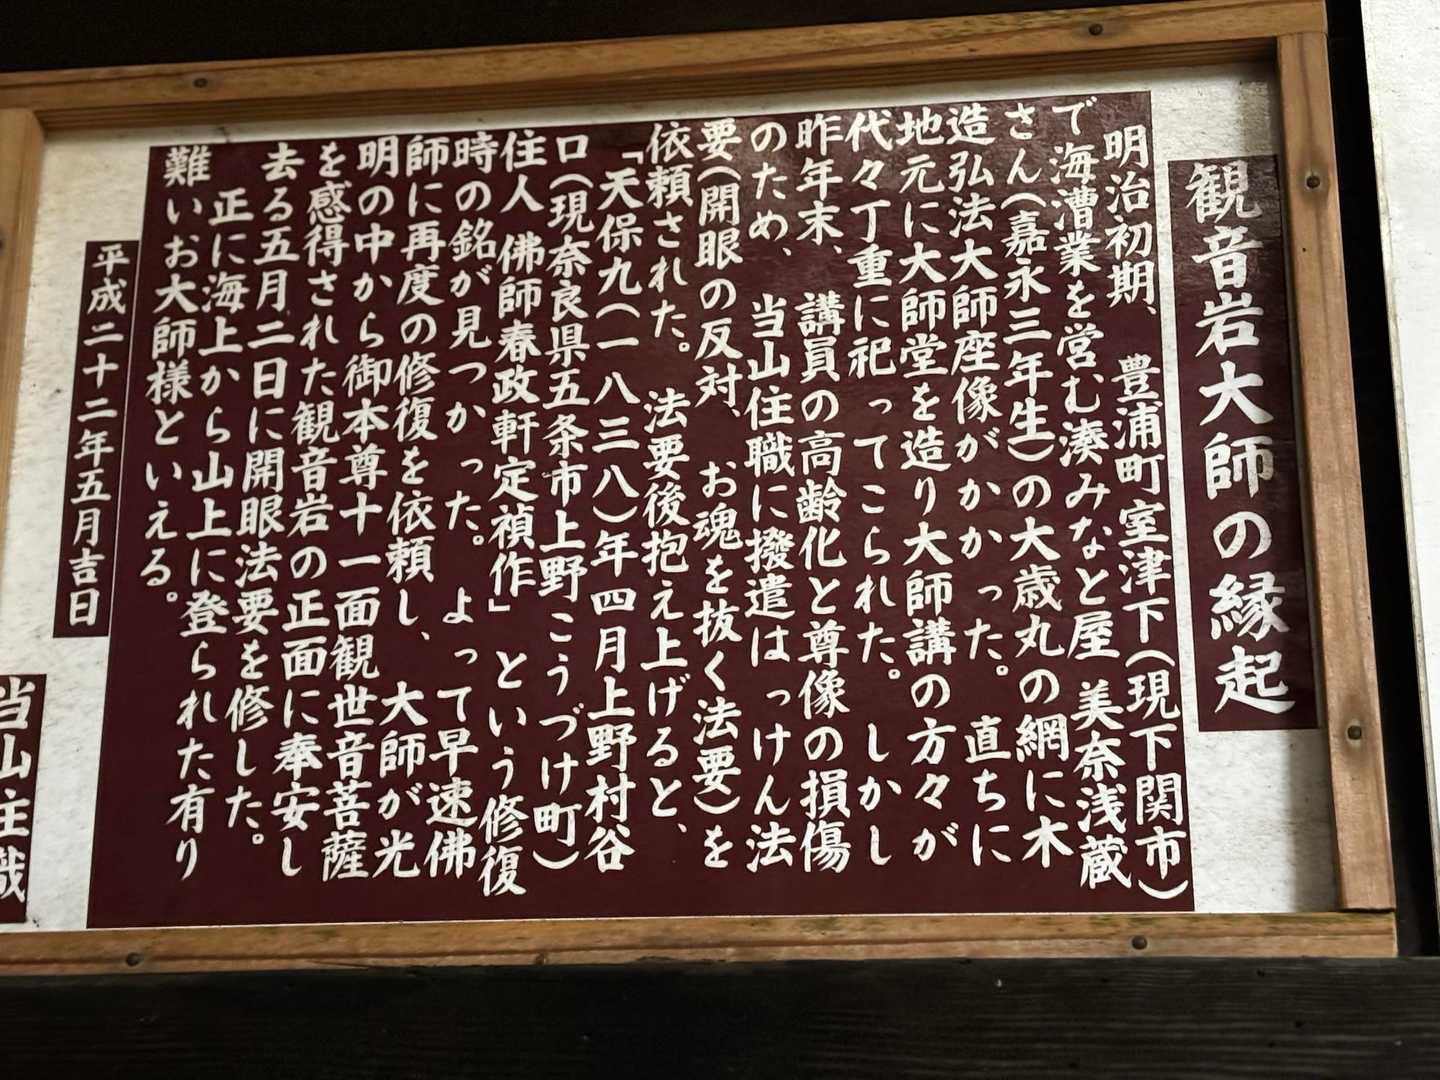 観音岩大師の縁起
明治初期、豊浦町室津下(現下関市)
で海漕業を営む湊みなと屋 美奈浅蔵
さん(嘉永三年生)の大歳丸の網に木
造弘法大師座像がかかった。直ちに
地元に大師堂を造り大師講の方々が
代々丁重に祀ってこられた。しかし
昨年末、講員の高齢化と尊像の損傷
のため、当山住職に撥遣はっけん法
要(開眼の反対、お魂を抜く法要)を
依頼された。法要後抱え上げると、
「天保九(一八三八)年四月上野村谷
口(現奈良県五条市上野こうづけ町)
住人 佛師春政軒定禎作」という修復
時の銘が見つかった。よって早速佛
師に再度の修復を依頼し、大師が光
明の中から御本尊十一面観世音菩薩
を感得された観音岩の正面に奉安し
去る五月二日に開眼法要を修した。
正に海上から山上に登られた有り
難いお大師様といえる。
平成二十二年五月吉日
当山住職